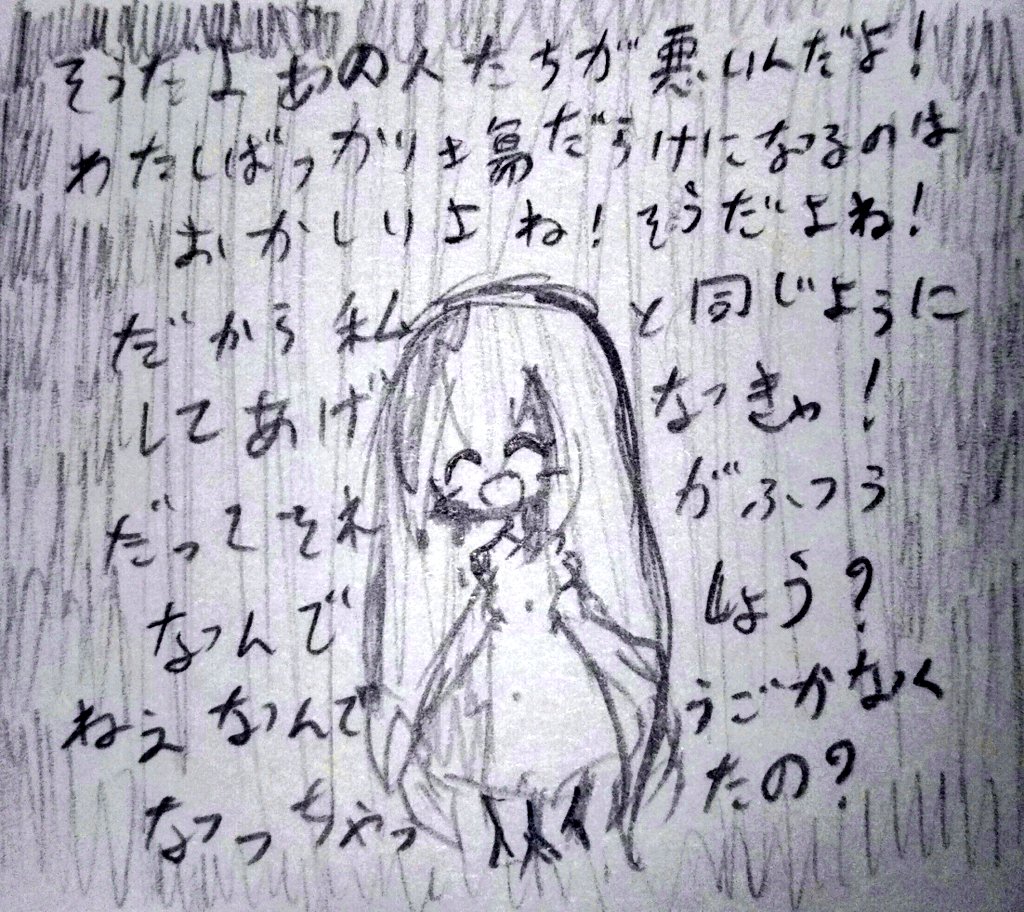 そうだよあの人たちが悪いんだよ!
わたしばっかりキ傷だらけになるのは
おかしいよね!そうだよね!
だから私と同じように
してあげなっきゃ!
だってそれがふつう
なんでしょう?
ねえなんでうごかなく
なっちゃったの?